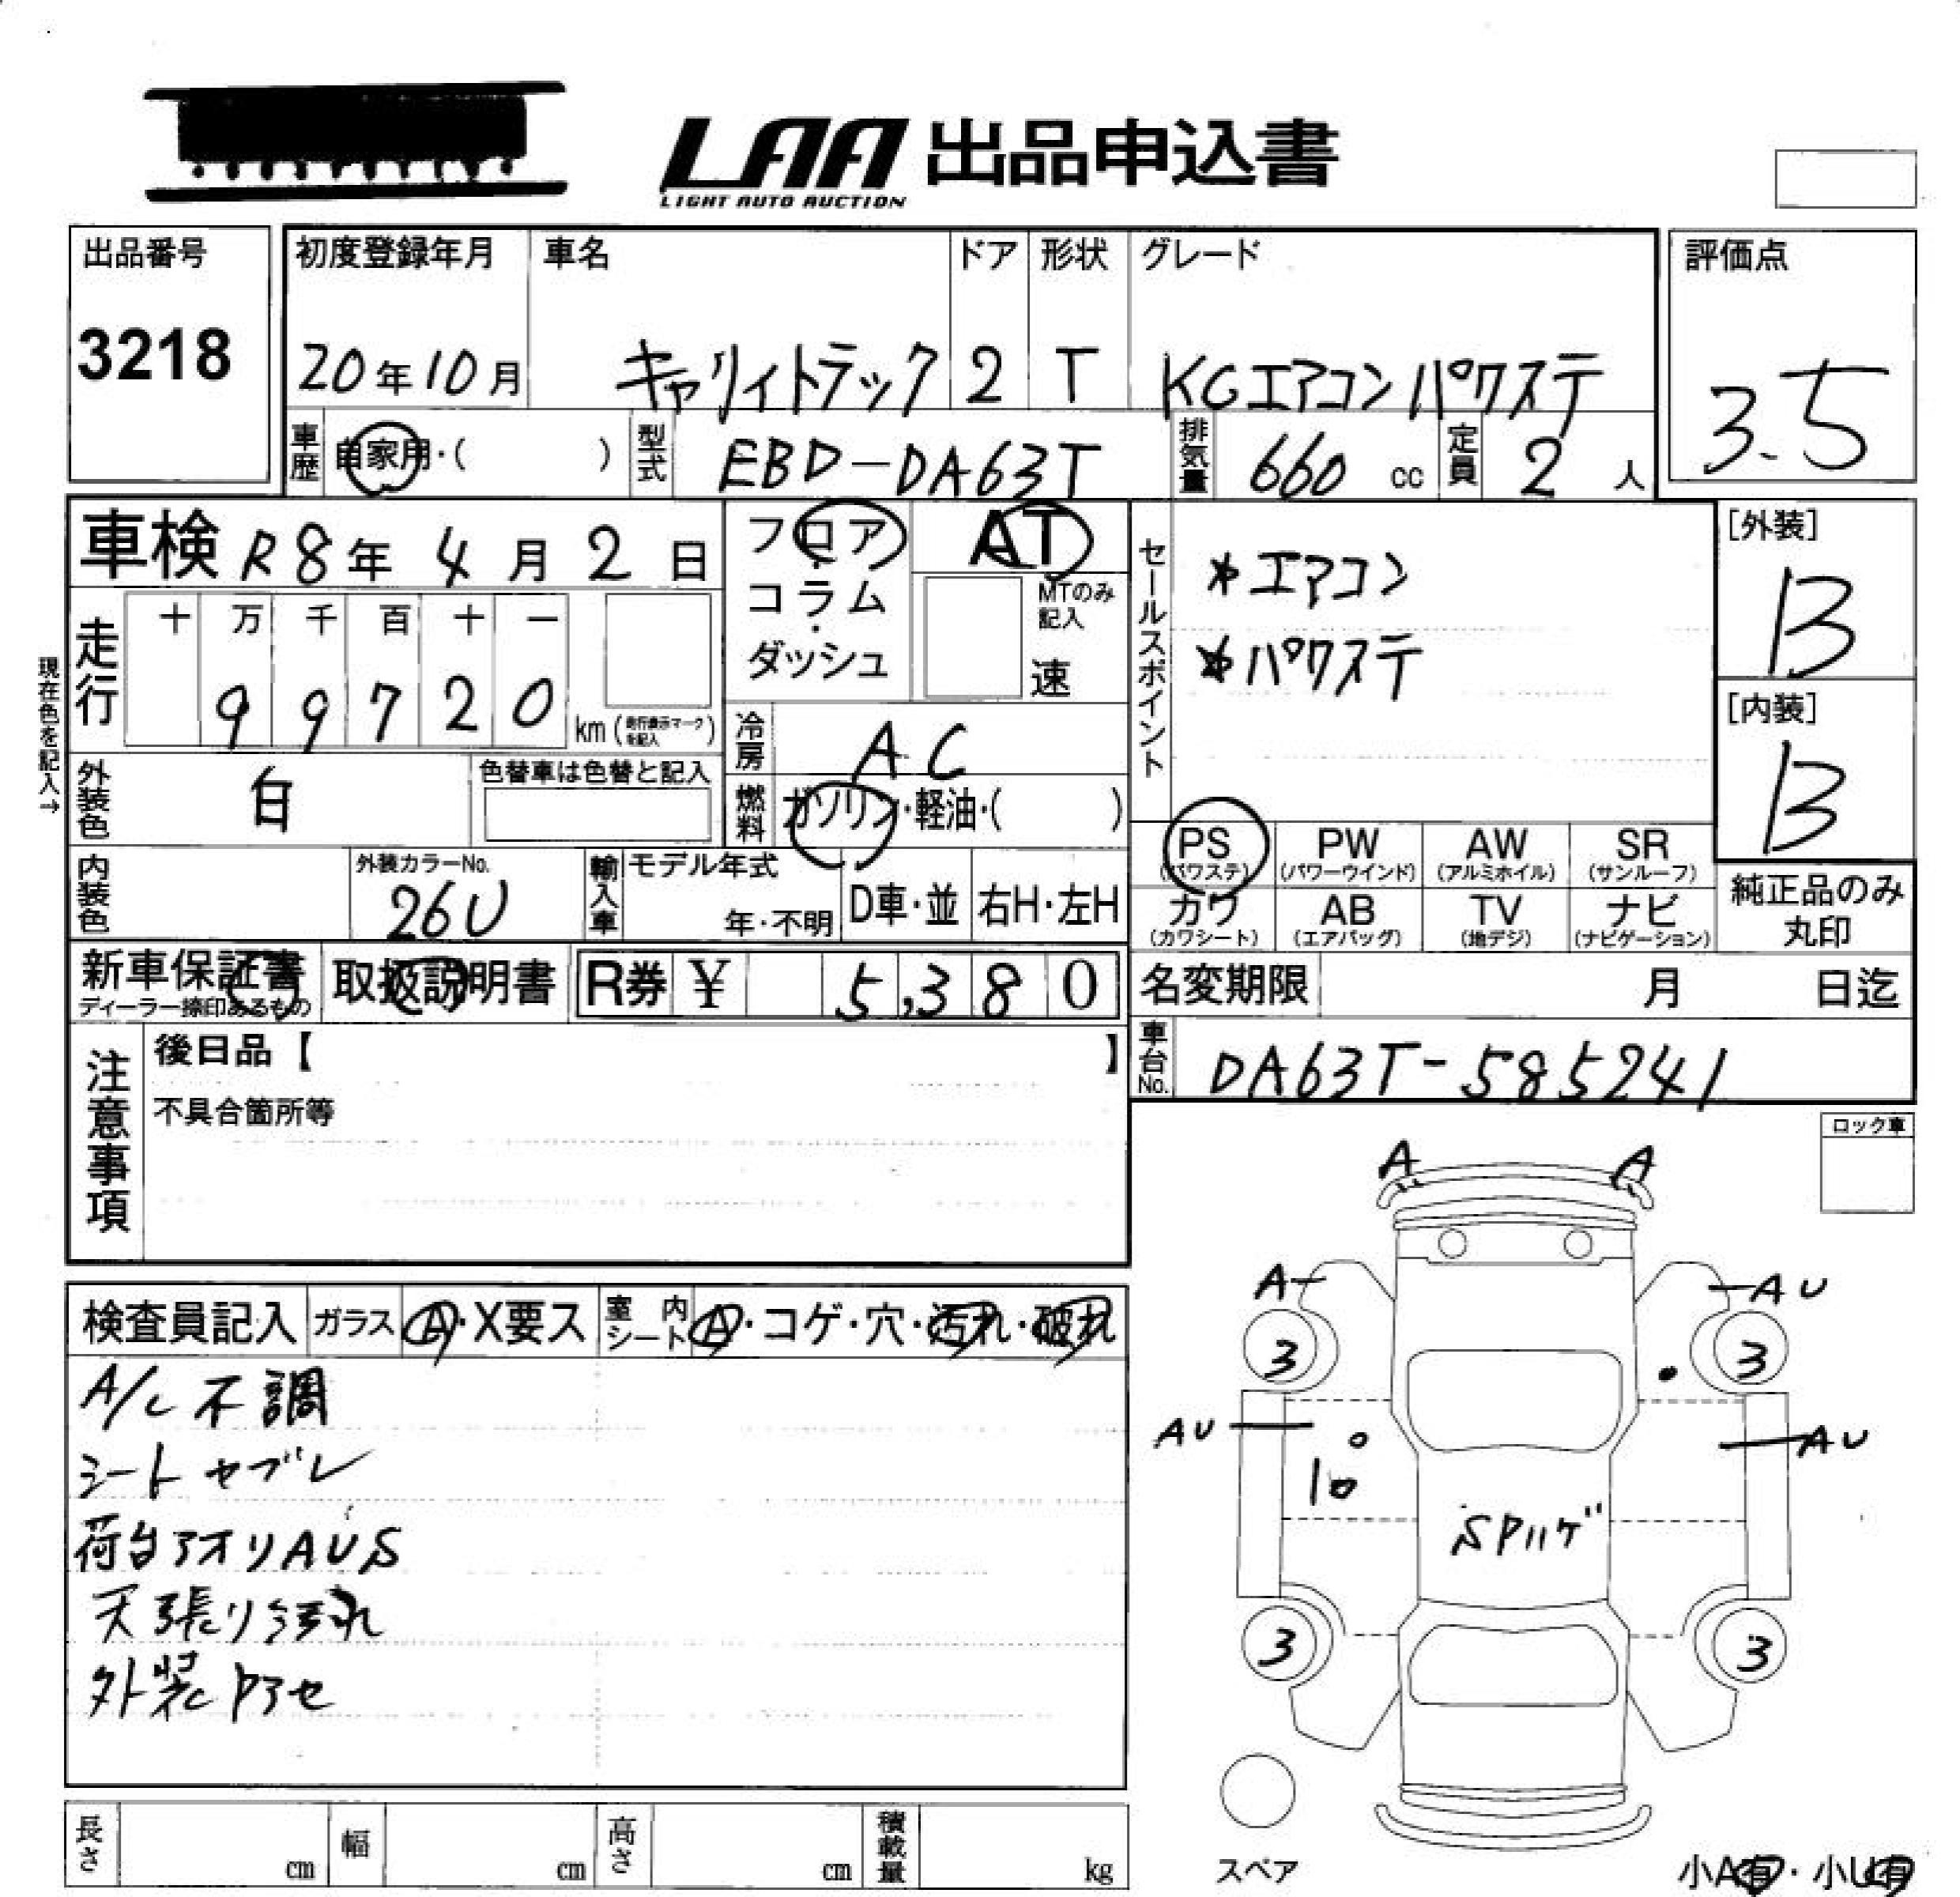 LAA 出品申込書
LIGHT AUTO AUCTION
出品番号
3218
初度登録年月 車名 ドア 形状 グレード
20年10月 キャリイトラック 2 T KGエアコンパワステ
評価点
3.5
車歴 自家用・( ) 型式 EBD-DA63T 排気量 660 cc 定員 2 人
車検 R8年 4月 2日
フロア・コラム・ダッシュ
AT
MTのみ記入
速
セールスポイント
*エアコン
*パワステ
[外装]
B
[内装]
B
現在色を記入→
走行
十 万 千 百 十 一
9 9 7 2 0 km (走行表示マークを記入)
冷房 AC
外装色 白 色替車は色替と記入
燃料 ガソリン・軽油・( )
PS PW AW SR
(パワステ) (パワーウインド) (アルミホイル) (サンルーフ)
カワ AB TV ナビ
(カワシート) (エアバッグ) (地デジ) (ナビゲーション)
純正品のみ
丸印
内装色 外装カラーNo. 26U 輸入車 モデル年式 年・不明 D車・並 右H・左H
新車保証書 取扱説明書 R券 ¥ 5,380
ディーラー捺印あるもの
名変期限 月 日迄
車台No. DA63T-585241
注意事項
後日品【 】
不具合箇所等
ロック車
検査員記入 ガラス A・X要ス 室内シート A・コゲ・穴・汚れ・破れ
A/C 不調
シートヤブレ
荷台アオリAUS
天張り汚れ
外装
A A
A AU
3 3
AU AU
10
3 3
スペア
小A有・小U有
長さ cm 幅 cm 高さ cm 積載量 kg